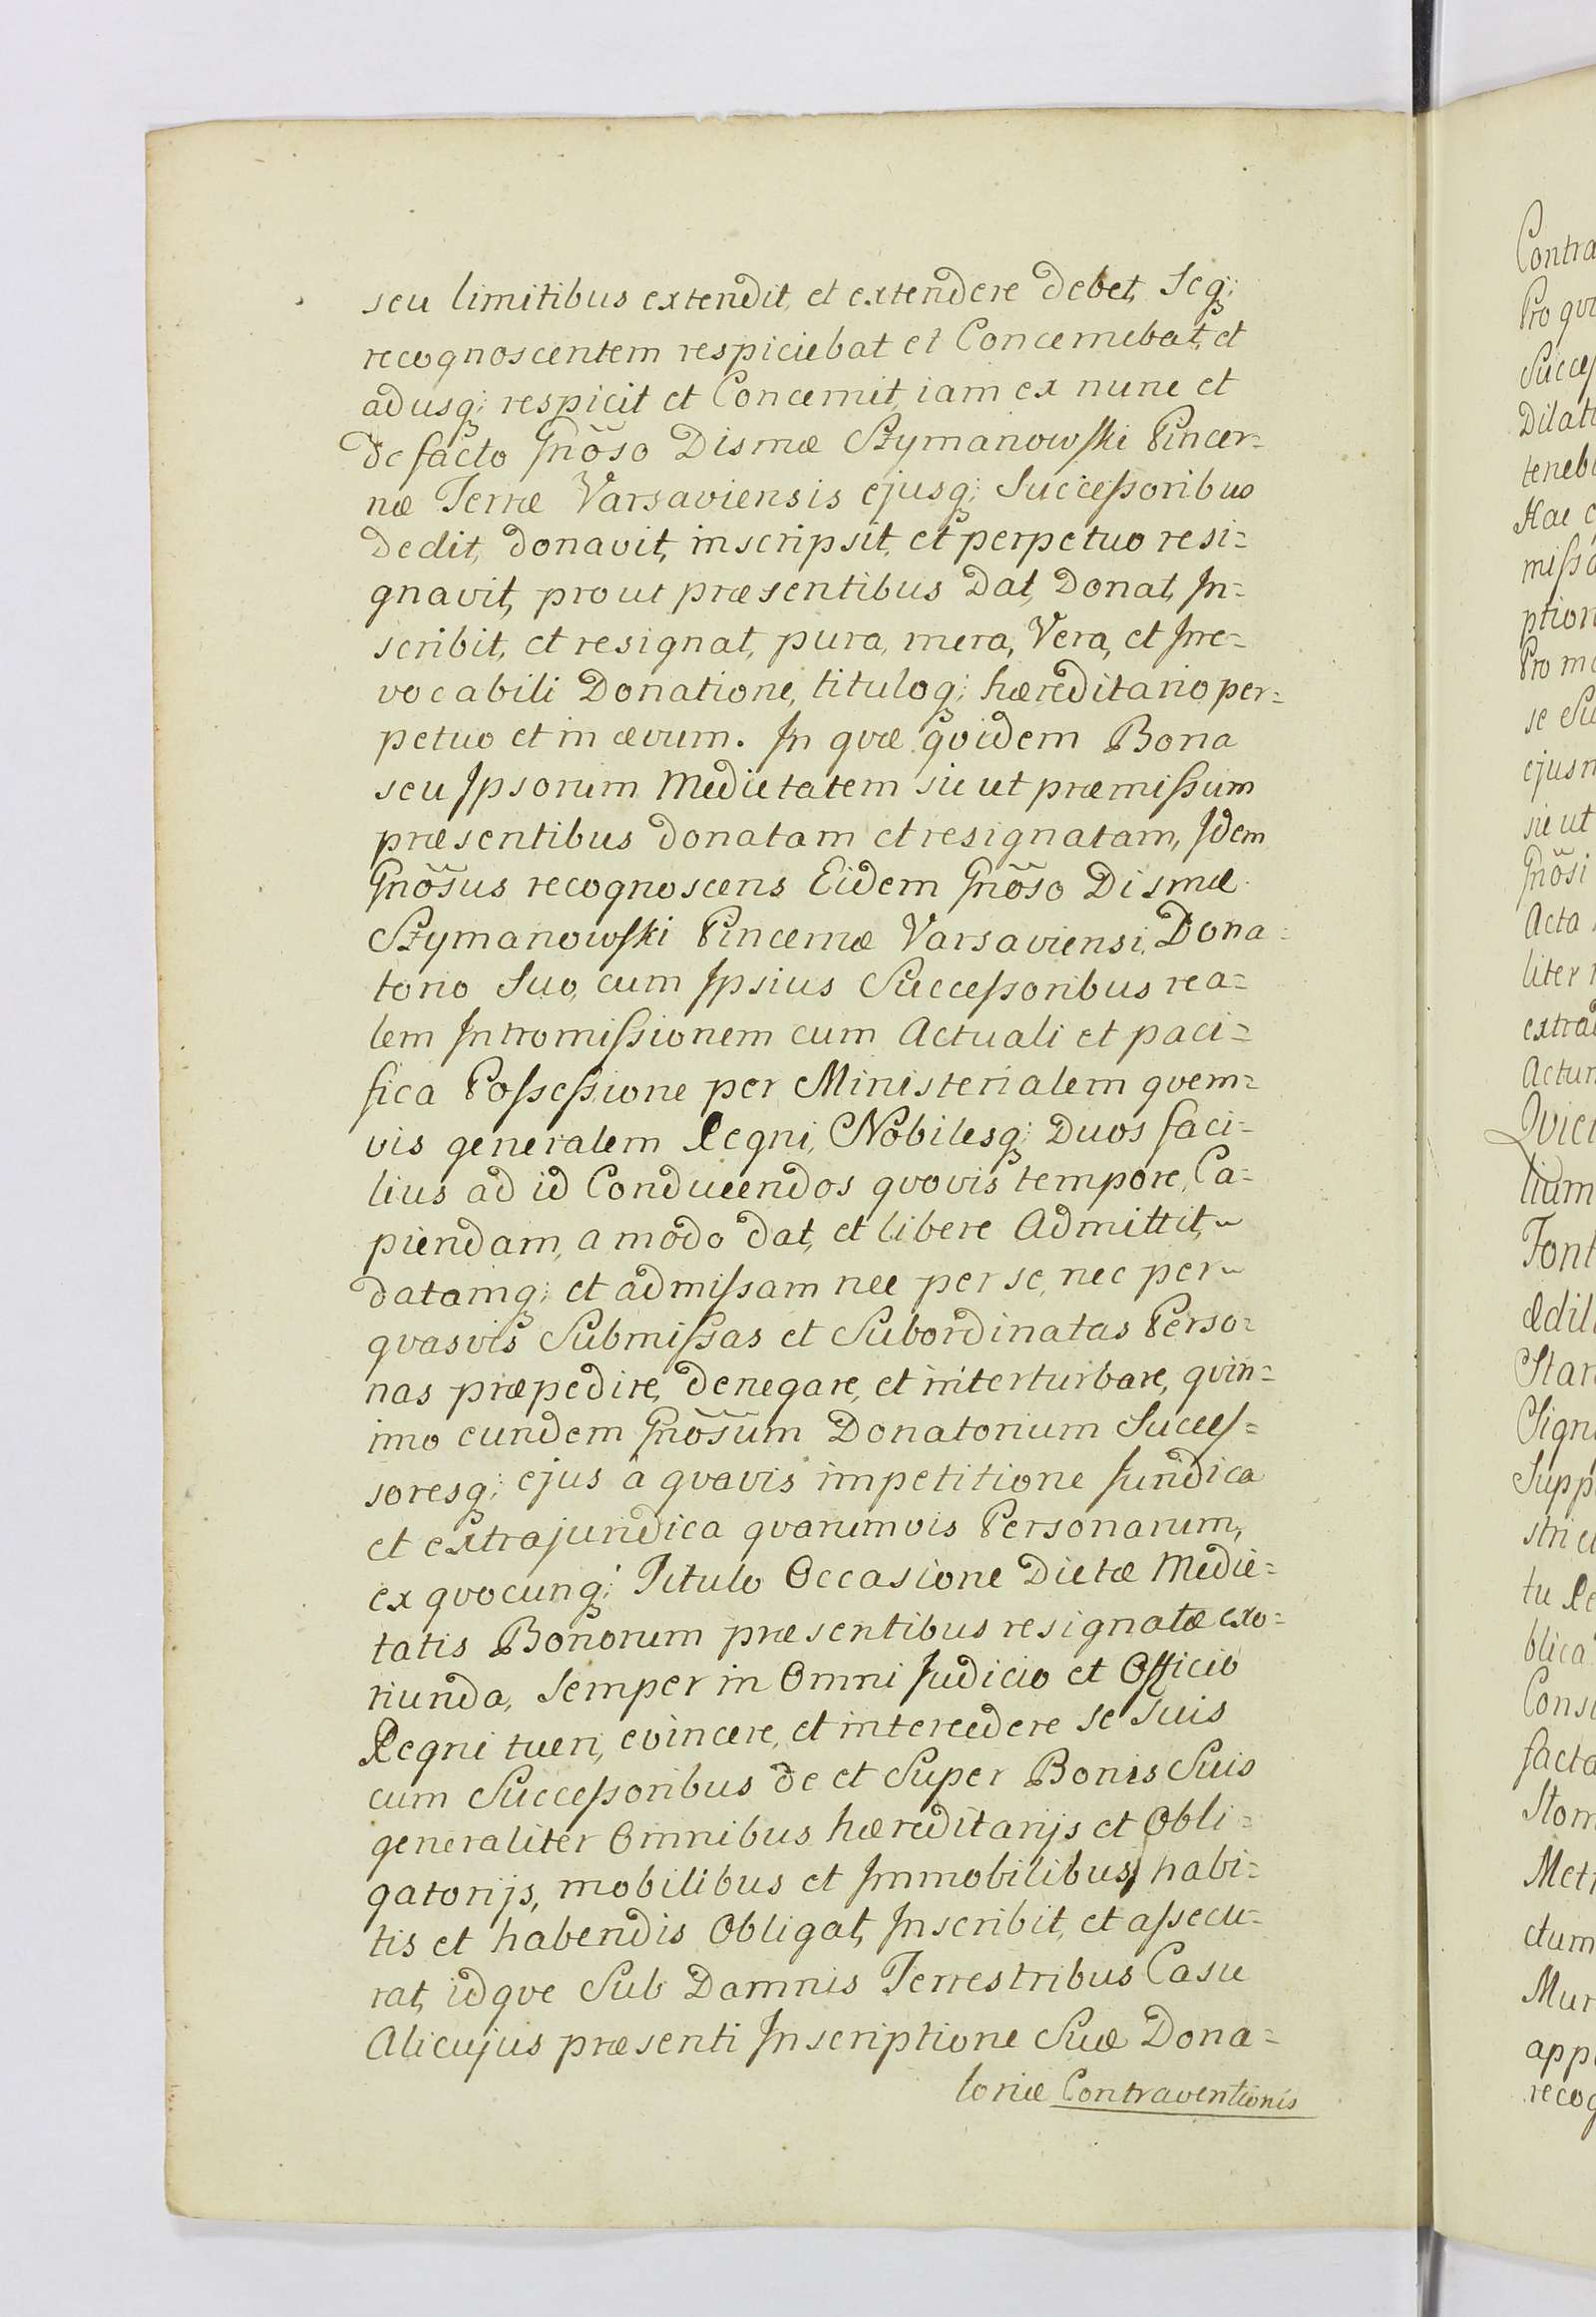 seu limitibus extendit, et extendere debet, Seq;
recognoscentem respiciebat et Concernebat, et
adusq; respicit et Concernit, iam ex nunc et
de facto Gnõso Dismæ Szymanowski Pincer=
næ Terræ Varsaviensis ejusq; Successoribus
dedit, donavit, inscripsit, et perpetuo resi=
gnavit, prout præsentibus Dat, Donat, In=
scribit, et resignat, pura, mera, Vera, et Irre=
vocabili Donatione, tituloq; hæreditario per=
petuo et in ævum. In qvæ qvidem Bona
seu Ipsorum Medietatem sic ut præmissum
præsentibus donatam et resignatam, Idem
Gnõsus recognoscens Eidem Gnõso Dismæ
Szymanowski Pincernæ Varsaviensi, Dona=
torio Suo, cum Ipsius Successoribus rea=
lem Intromissionem cum Actuali et paci=
fica Possessione per Ministerialem qvem=
vis generalem Regni, Nobilesq; Duos faci=
lius ad id Conducendos qvovis tempore, Ca=
piendam, a modo dat, et libere Admittit,
datamq; et admissam nec per se, nec per
qvasvis Submissas et Subordinatas Perso=
nas præpedire, denegare, et interturbare, qvin=
imo eundem Gnõsum Donatorium Succes=
soresq; ejus à qvavis impetitione Juridica
et extrajuridica qvarumvis Personarum,
ex qvocunq; Titulo Occasione Dictæ Medie=
tatis Bonorum præsentibus resignatæ exo=
riunda, Semper in Omni Judicio et Officio
Regni tueri, evincere, et intercedere se suis
cum Successoribus de et Super Bonis Suis
generaliter Omnibus hæreditarijs et Obli=
gatorijs, mobilibus et Immobilibus, habi=
tis et habendis Obligat, Inscribit, et assecu=
rat, idqve Sub Damnis Terrestribus Casu
Alicujus præsenti Inscriptione Suæ Dona=
toriæ Contraventionis